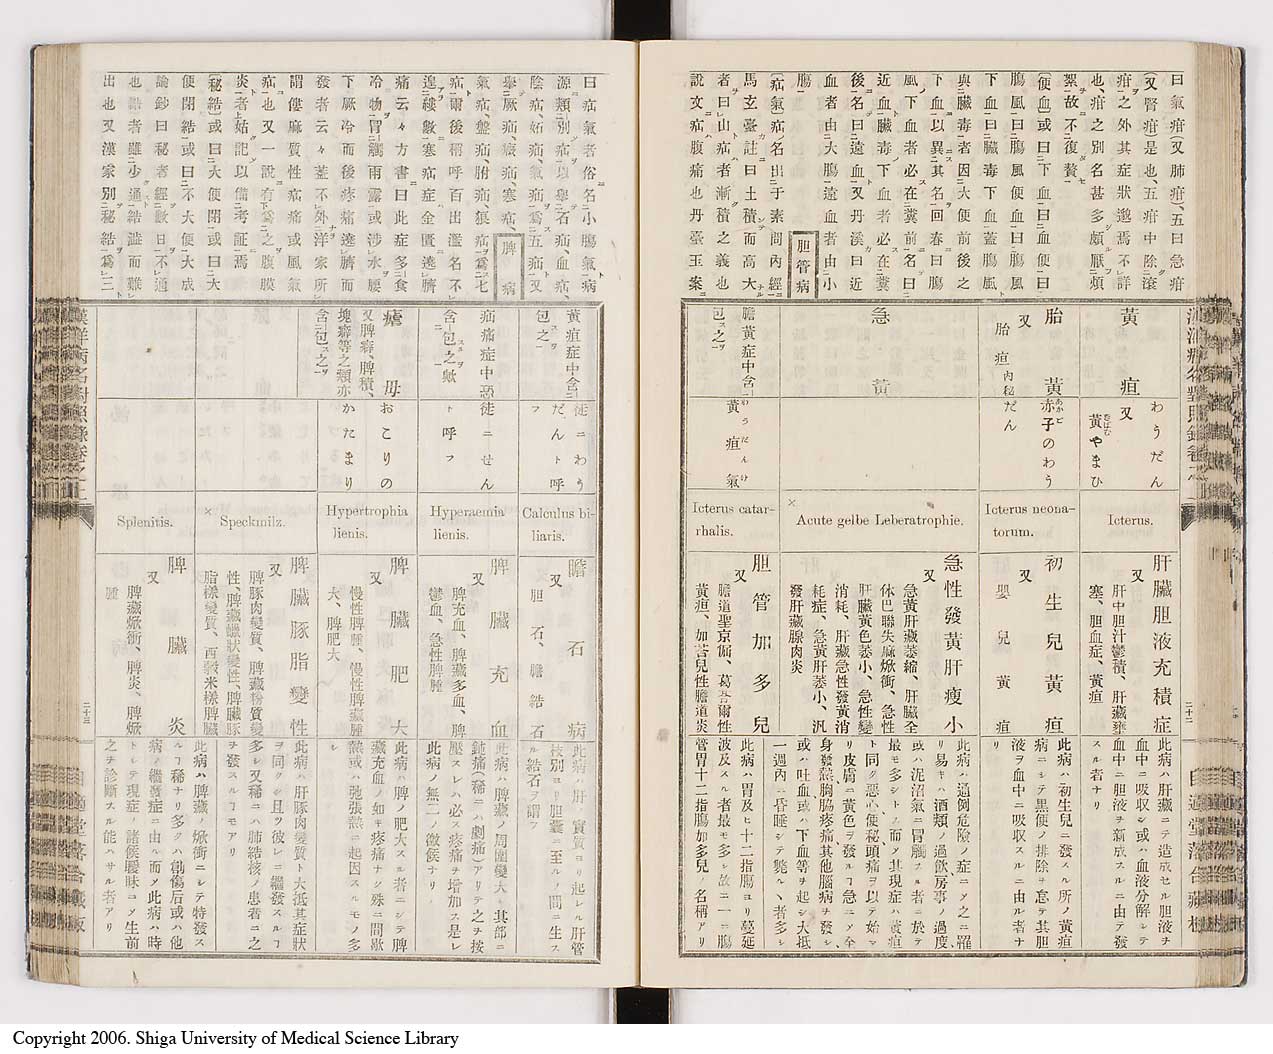 曰氣疳又肺疳、五曰急疳
(又腎疳)是也五疳中除滾
疳之外其症狀邈焉不詳
也、疳之別名甚多頗厭煩
絮故不復贅
(便血)或曰下血曰血便曰
膓風曰膓風便血曰膓風
下血曰臟毒下血蓋膓風
與臟毒者因大便前後之
下血以異其名回春曰膓
風下血者必在糞前名曰
近血臟毒下血者必在糞
後名曰遠血又丹溪曰近
血者由大膓遠血者由小
膓
胆管病
(疝氣)疝名出于素問內經
馬玄臺註曰土積而高大
者曰山疝者漸積之義也
說文疝腹痛也丹臺玉案
黃疸
わうだん
又
黃やまひ
Icterus.
肝臟胆液充積症
又
肝中胆汁鬱積、肝臟壅
塞、胆血症、黃疸
此病ハ肝臟ニテ造成セル胆液ヲ
血中ニ吸収シ或ハ血液分解シテ
血中ニ胆液ヲ新成スルニ由テ發
スル者ナリ
胎黃
又
胎疸內秘
赤子のわう
だん
Icterus neona-
torum.
初生兒黃疸
又
嬰兒黃疸
此病ハ初生兒ニ發スル所ノ黃疸
病ニシテ黑便ノ排除ヲ怠テ其胆
液ヲ血中ニ吸収スルニ由ル者ナ
リ
急黃
× Acute gelbe Leberatrophie.
急性發黃肝瘦小
又
急黃肝臟萎縮、肝臟全
休巴聯失麻焮衝、急性
肝臟黃色萎小、急性變
消耗、肝臟急性發黃消
耗症、急黃肝萎小、汎
發肝臟腺肉炎
此病ハ通例危險ノ症ニメ之ニ罹
リ易キハ酒類ノ過飲房事ノ過度、
或ハ泥沼氣ニ冒觸スル者ニ於テ
最モ多シトス而メ其現症ハ黃疸
ト同ク惡心便秘頭痛ヲ以テ始マ
リ皮膚ニ黃色ヲ發ルヿ急ニメ全
身發熱胸脇疼痛其他腦病ヲ發シ
或ハ吐血或ハ下血等ヲ起シ大抵
一週內ニ昏睡シテ斃ルヽ者多シ
膽黃症中含
包スヲ
黃疸氣
Icterus catar-
rhalis.
胆管加多兒
又
膽道聖京偭、葛荅爾性
黃疸、加荅兒性膽道炎
此病ハ胃及ヒ十二指膓ヨリ蔓延
波及スル者最モ多シ故ニ一ニ膓
管胃十二指膓加多兒ノ名稱アリ
曰疝氣者俗名小膓氣病
源類別以擧石疝血疝、
陰疝、妬疝、氣疝爲五疝又
擧厥疝、癥疝、寒疝、
脾病
氣疝、盤疝、胕疝、狼疝爲七
疝爾後稱呼百出濫名不
遑縷數寒疝症金匱遶臍
痛云々方書曰此症多食
冷物冒觸雨露或涉水腰
下厥冷而後疼痛遶臍而
發者云々蓋不外洋家所
謂僂麻質性疝痛或風氣
疝也又一說有爲之腹膜
炎者姑記以備考証焉
(秘結)或曰大便閉或曰大
便閉結或曰不大便大成
論鈔曰秘者經數日不通
也結者雖少通結澁而難
出也又漢家別秘結爲三
黃疸症中含
包之
徒ニわう
だんト呼
フ
Calculus bi-
liaris.
膽石病
又
胆石、膽結石
此病ハ肝ノ實質ヨリ起レル肝管
枝別ヨリ胆囊ニ至ルノ間ニ生ス
ル結石ヲ謂フ
疝痛症中
含包之歟
徒ニせん
ト呼フ
Hyperaemia
lienis.
脾臟充血
又
脾充血、脾臟多血、脾
鬱血、急性脾腫
此病ハ脾臟ノ周圍變大シ其部ニ
鈍痛(稀ニハ劇痛)アリテ之ヲ按
壓スレハ必ス疼痛ヲ增加ス是レ
此病ノ無二ノ徵候ナリ
瘧母
又脾癖、脾積、
塊癖等之類亦
含包之
おこりの
かたまり
Hypertrophia
lienis.
脾臟肥大
又
慢性脾腫、慢性脾臟腫
大、脾肥大
此病ハ脾ノ肥大スル者ニシテ脾
臟充血ノ如キ疼痛ナシ殊ニ間歇
熱或ハ弛張熱ニ起因スルモノ多
シ
× Speckmilz.
脾臟豚脂變性
又
脾豚肉變質、脾臟粉質變
性、脾臟蠟狀變性、脾臟豚
脂樣變質、西穀米樣脾臟
此病ハ肝豚肉變質ト大抵其症狀
ヲ同クシ且ツ彼レニ繼發スルヿ
多シ又稀ニハ肺結核ノ患者ニ之
ヲ發スルヿモアリ
Splenitis.
脾臟炎
又
脾臟焮衝、脾炎、脾焮
腫
此病ハ脾臟ノ焮衝ニシテ特發ス
ルヿ稀ナリ多クハ創傷后或ハ他
病ノ繼發症ニ由ル而メ此病ハ時
トシテ現症ノ諸候曖昧ニメ生前
之ヲ診斷スル能ハサル者アリ
Copyright 2006. Shiga University of Medical Science Library